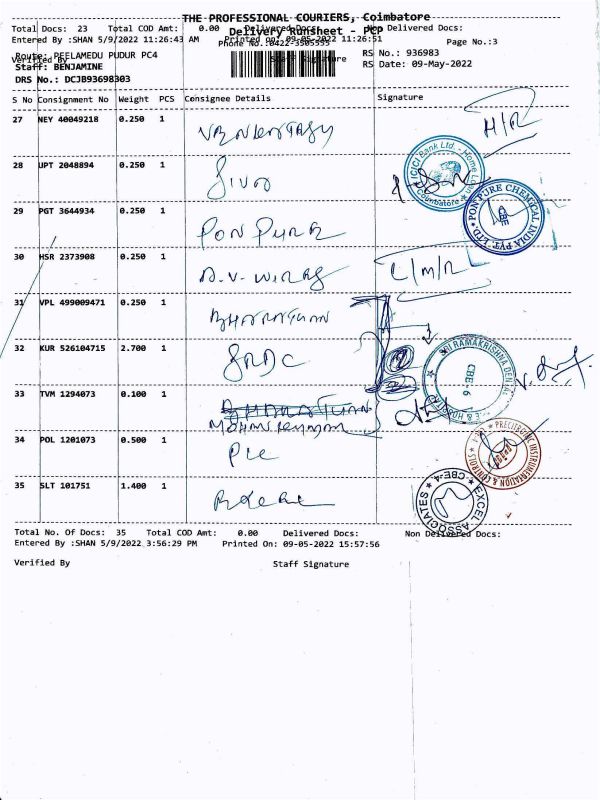 THE PROFESSIONAL COURIERS, Coimbatore
Total Docs: 23 Total COD Amt: 0.00 Delivered Docs: Non Delivered Docs:
Delivery Runsheet - PCP
Entered By :SHAN 5/9/2022 11:26:43 AM Printed on: 09-05-2022 11:26:51
Phone No.:0422-3505555 Page No.:3
Route: PEELAMEDU PUDUR PC4 RS No.: 936983
Verified By Staff Signature
Staff: BENJAMINE RS Date: 09-May-2022
DRS No.: DCJB93698303
S No Consignment No Weight PCS Consignee Details Signature
27 NEY 40049218 0.250 1 H/R
28 UPT 2048894 0.250 1 Siva
ICICI Bank Ltd. - Home Loan Coimbatore
29 PGT 3644934 0.250 1 PON PURE
PON PURE CHEMICAL INDIA PVT. LTD CBE
30 HSR 2373908 0.250 1 L/M/R
31 VPL 499009471 0.250 1 BHARATHAN
32 KUR 526104715 2.700 1 SRDC
SRI RAMAKRISHNA DENTAL & HOSPITAL CBE-6
33 TVM 1294073 0.100 1 BHARATHAN
34 POL 1201073 0.500 1 PIC
PRECIERGINE INSTRUMENTATION & CONTROLS
35 SLT 101751 1.400 1
EXCEL ASSOCIATES CBE-4
Total No. Of Docs: 35 Total COD Amt: 0.00 Delivered Docs: Non Delivered Docs:
Entered By :SHAN 5/9/2022 3:56:29 PM Printed On: 09-05-2022 15:57:56
Verified By Staff Signature